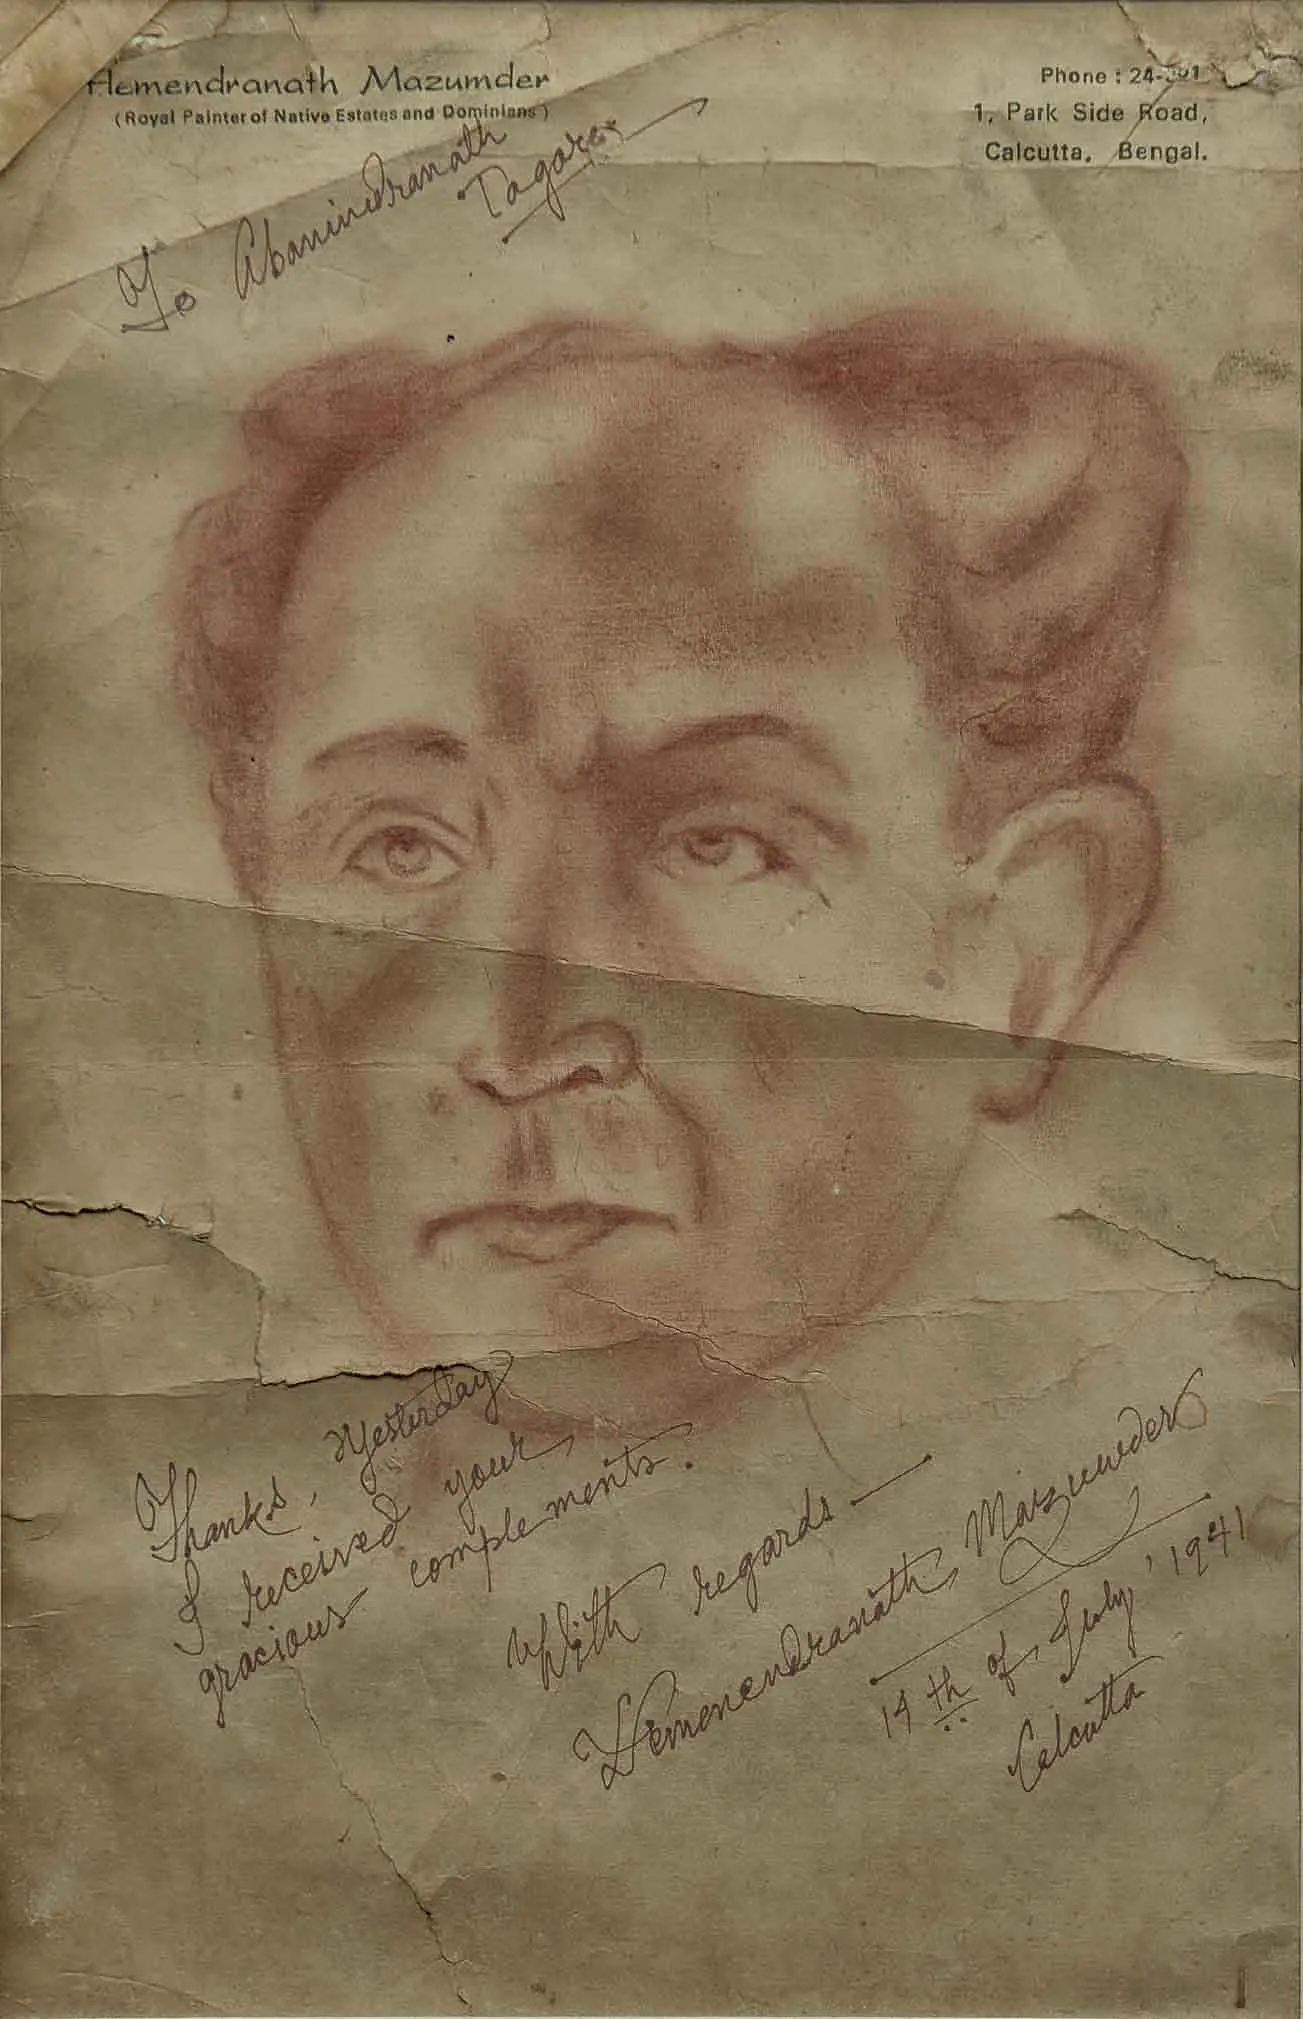 Hemendranath Mazumder
(Royal Painter of Native Estates and Dominians)
Phone : 24-
1, Park Side Road,
Calcutta, Bengal.
To Abanindranath
Tagore
Thanks, Yesterday
I received your
gracious complements.
With regards —
Hemenendranath Mazumder
14th of July '1941
Calcutta